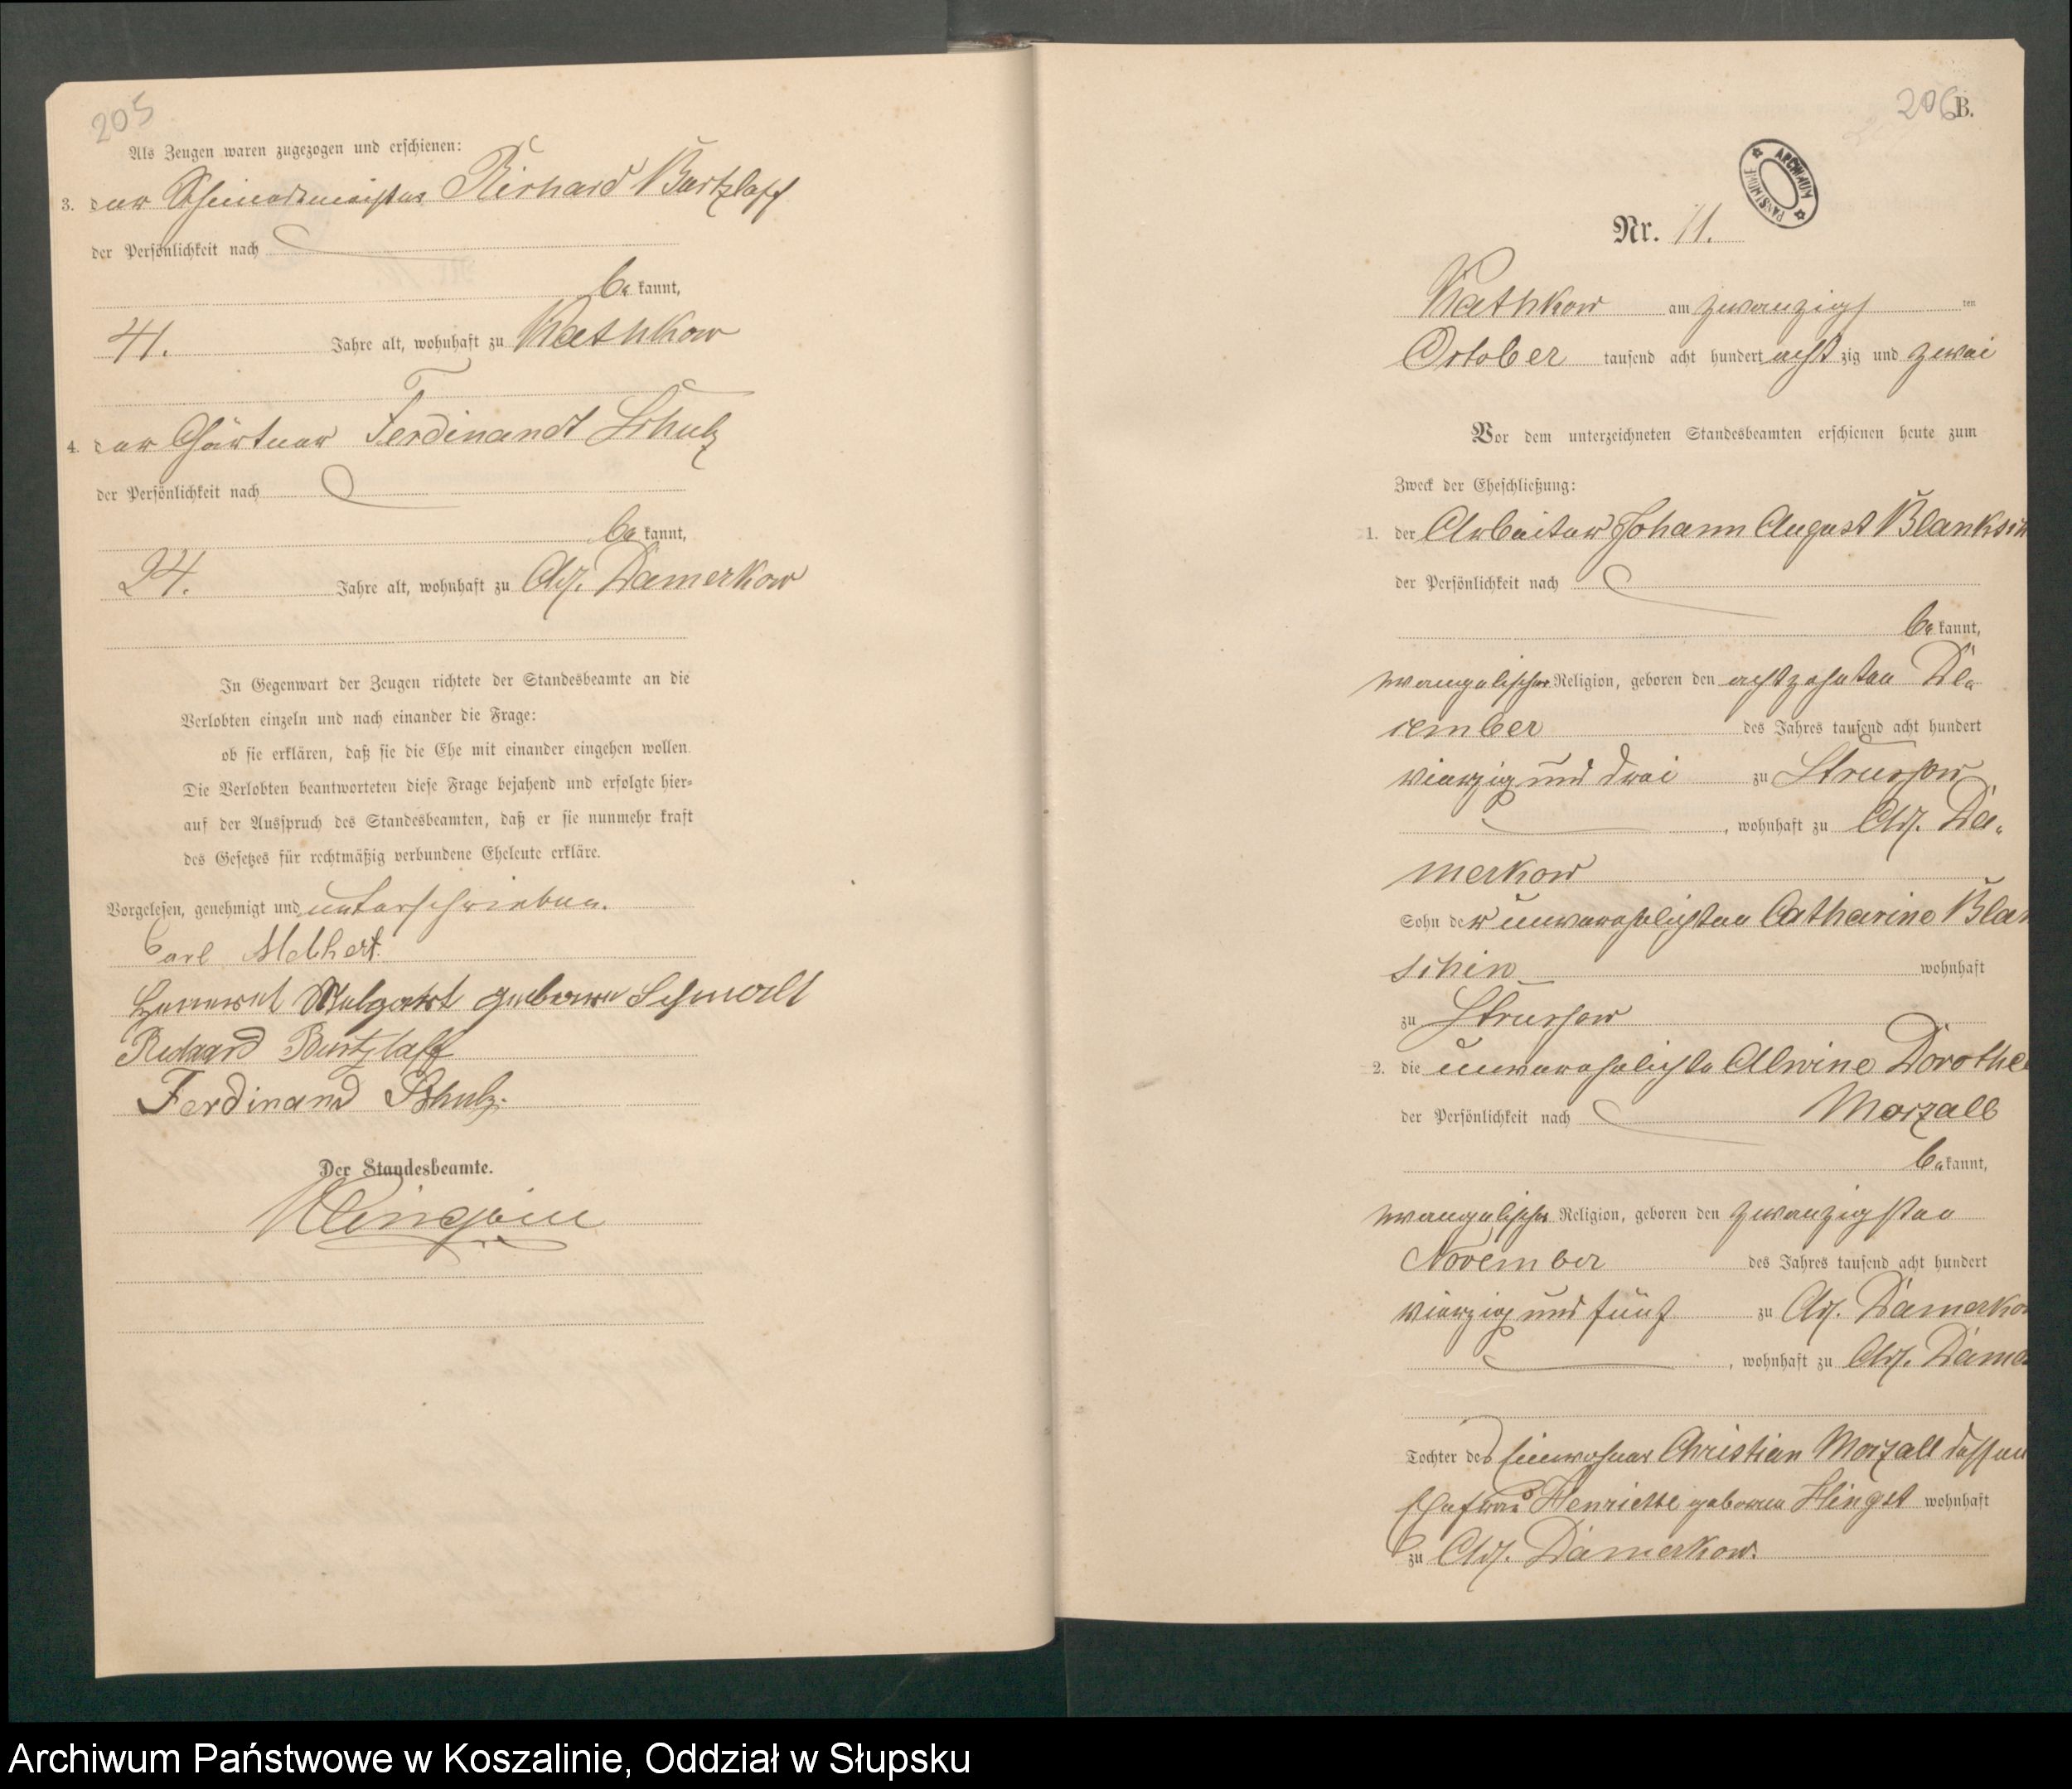 205
Als Zeugen waren zugezogen und erschienen:
3. der Schneidermeister Richard Burtzlaff
der Persönlichkeit nach
be kannt,
41. Jahre alt, wohnhaft zu Kathkow
4. der Gärtner Ferdinandt Schulz
der Persönlichkeit nach
be kannt,
24. Jahre alt, wohnhaft zu Adl. Damerkow
In Gegenwart der Zeugen richtete der Standesbeamte an die
Verlobten einzeln und nach einander die Frage:
ob sie erklären, daß sie die Ehe mit einander eingehen wollen.
Die Verlobten beantworteten diese Frage bejahend und erfolgte hier=
auf der Ausspruch des Standesbeamten, daß er sie nunmehr kraft
des Gesetzes für rechtmäßig verbundene Eheleute erkläre.
Vorgelesen, genehmigt und unterschrieben.
Carl
geborne
Burtzlaff
Ferdinand Schulz.
Der Standesbeamte.
206
B.
ARCHIWUM PAŃSTWOWE
Nr. 11.
Kathkow am zwanzigs ten
October tausend acht hundert acht zig und zwei
Vor dem unterzeichneten Standesbeamten erschienen heute zum
Zweck der Eheschließung:
1. der Arbeiter Johann August
der Persönlichkeit nach
be kannt,
evangelischer Religion, geboren den achtzehnten De
cember des Jahres tausend acht hundert
vierzig und drei zu Strussow
, wohnhaft zu Adl. Da-
merkow
Sohn der unverehelichten Catharine Blan
schin wohnhaft
zu Strussow
2. die unverehelichte Alwine Dorothe
der Persönlichkeit nach Morzall
be kannt,
evangelischer Religion, geboren den zwanzigsten
November des Jahres tausend acht hundert
vierzig und fünf zu Adl. Damerkow
, wohnhaft zu Adl. Damer
Tochter des Einwohner Christian Morzall dessen
Ehefrau Henriette geborne Hingst wohnhaft
zu Adl. Damerkow.
Archiwum Państwowe w Koszalinie, Oddział w Słupsku